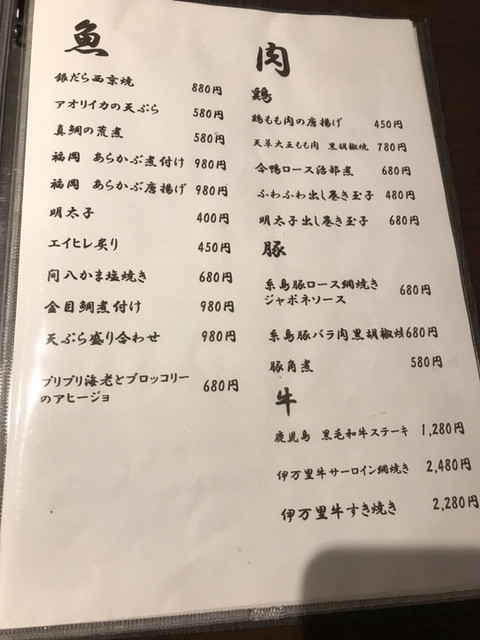 魚
銀だら西京焼 880円
アオリイカの天ぷら 580円
真鯛の荒煮 580円
福岡 あらかぶ煮付け 980円
福岡 あらかぶ唐揚げ 980円
明太子 400円
エイヒレ炙り 450円
間八かま塩焼き 680円
金目鯛煮付け 980円
天ぷら盛り合わせ 980円
プリプリ海老とブロッコリー
のアヒージョ 680円
肉
鶏
鶏もも肉の唐揚げ 450円
天草大王もも肉 黒胡椒焼 780円
合鴨ロース治部煮 680円
ふわふわ出し巻き玉子 480円
明太子出し巻き玉子 680円
豚
糸島豚ロース網焼き
ジャポネソース 680円
糸島豚バラ肉黒胡椒焼680円
豚角煮 580円
牛
鹿児島 黒毛和牛ステーキ 1,280円
伊万里牛サーロイン網焼き 2,480円
伊万里牛すき焼き 2,280円